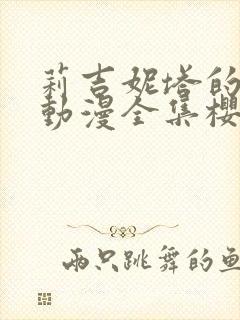 莉吉妮塔的
動漫全集櫻
兩只跳舞的魚